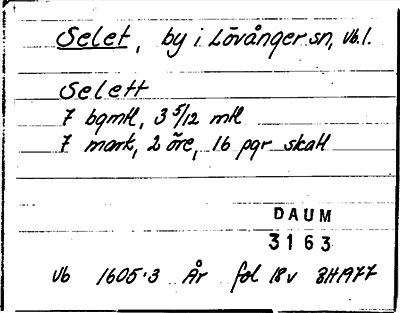 Selet, by i Lövånger sn, Vb.l.
Selett
7 bgmtl, 3 5/12 mtl
7 mark, 2 öre, 16 pgr skatt
DAUM
3163
Vb 1605:3 År fol 18v BH1977